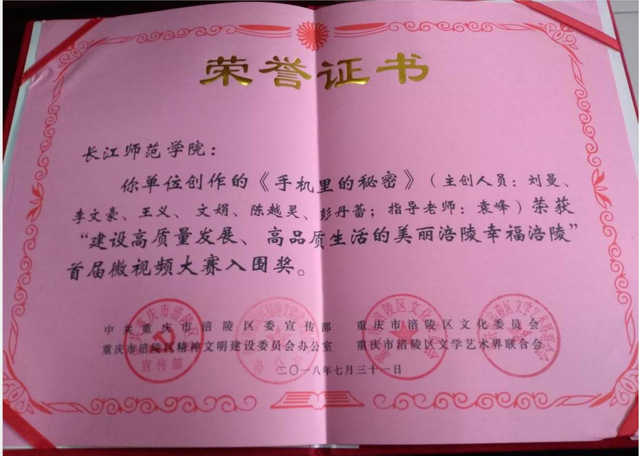 荣誉证书
长江师范学院：
你单位创作的《手机里的秘密》（主创人员：刘曼、
李文豪、王义、文娟、陈越灵、彭丹蕾；指导老师：袁峰）荣获
“建设高质量发展、高品质生活的美丽涪陵幸福涪陵”
首届微视频大赛入围奖。
中共重庆市涪陵区委宣传部 重庆市涪陵区文化委员会
重庆市涪陵区精神文明建设委员会办公室 重庆市涪陵区文学艺术界联合会
二〇一八年七月三十一日
宣传部